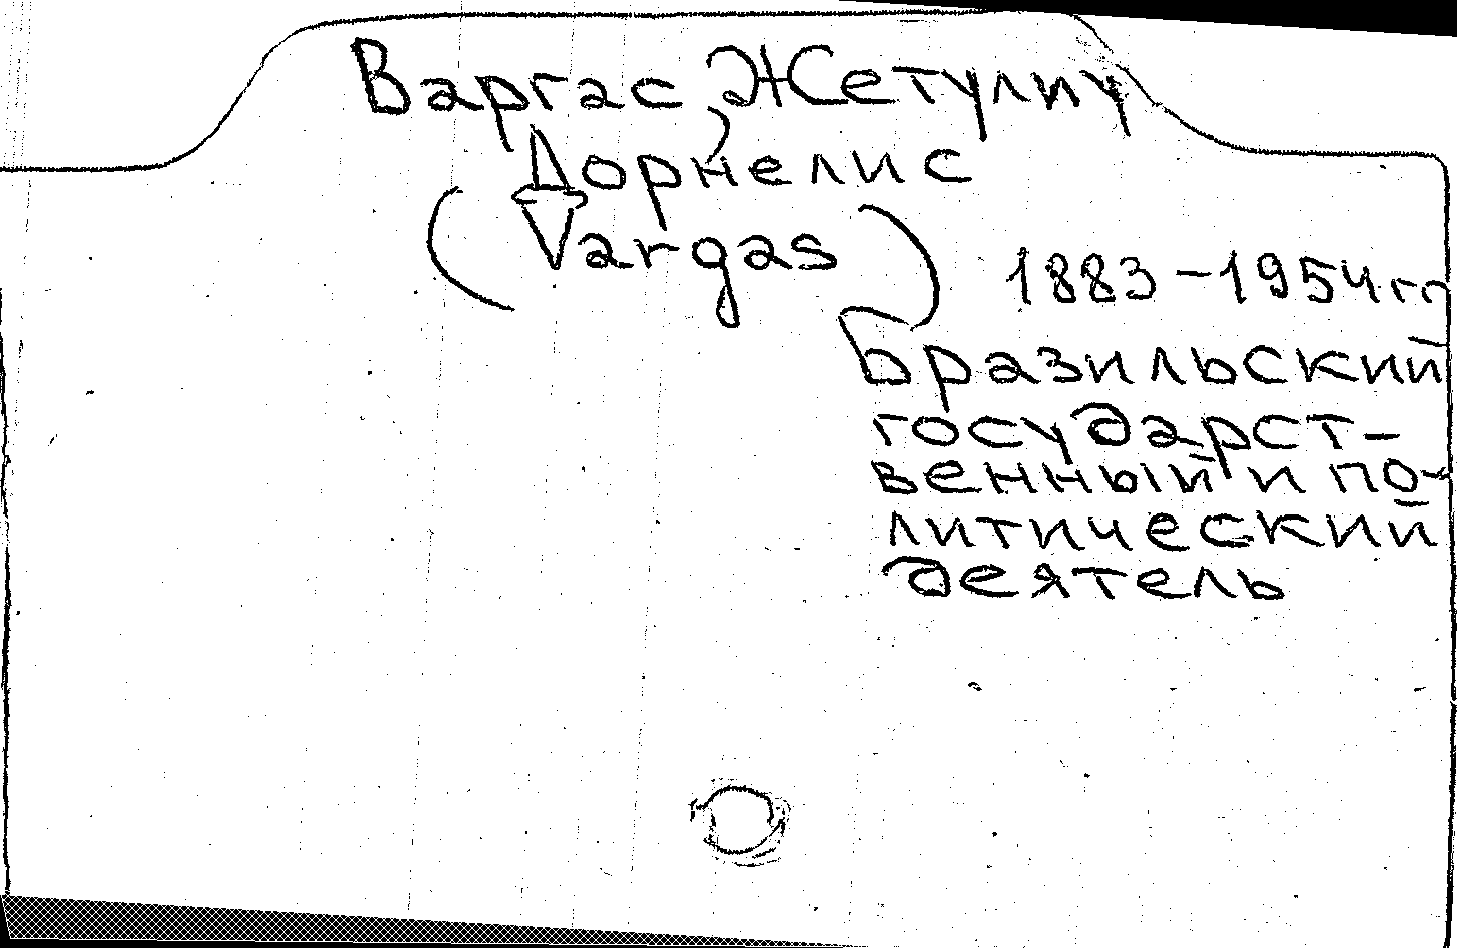 Варгас Жетулиу
Дорнелис
(Vargas)
1883-1954гг
Бразильский
государст-
венный и по-
литический
деятель